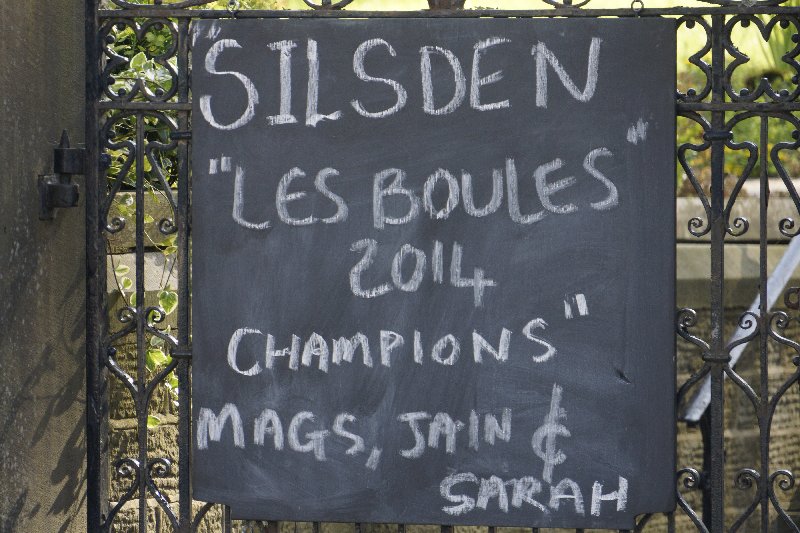 "SILSDEN
"LES BOULES"
2014
CHAMPIONS"
MAGS, JAIN &
SARAH